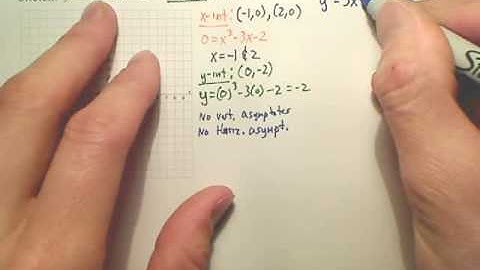 x-int: (-1,0), (2,0)
y = 3x
0=x³-3x-2
x=-1 & 2
y-int: (0,-2)
y=(0)³-3(0)-2=-2
No vert. asymptotes
No Horiz. asympt.